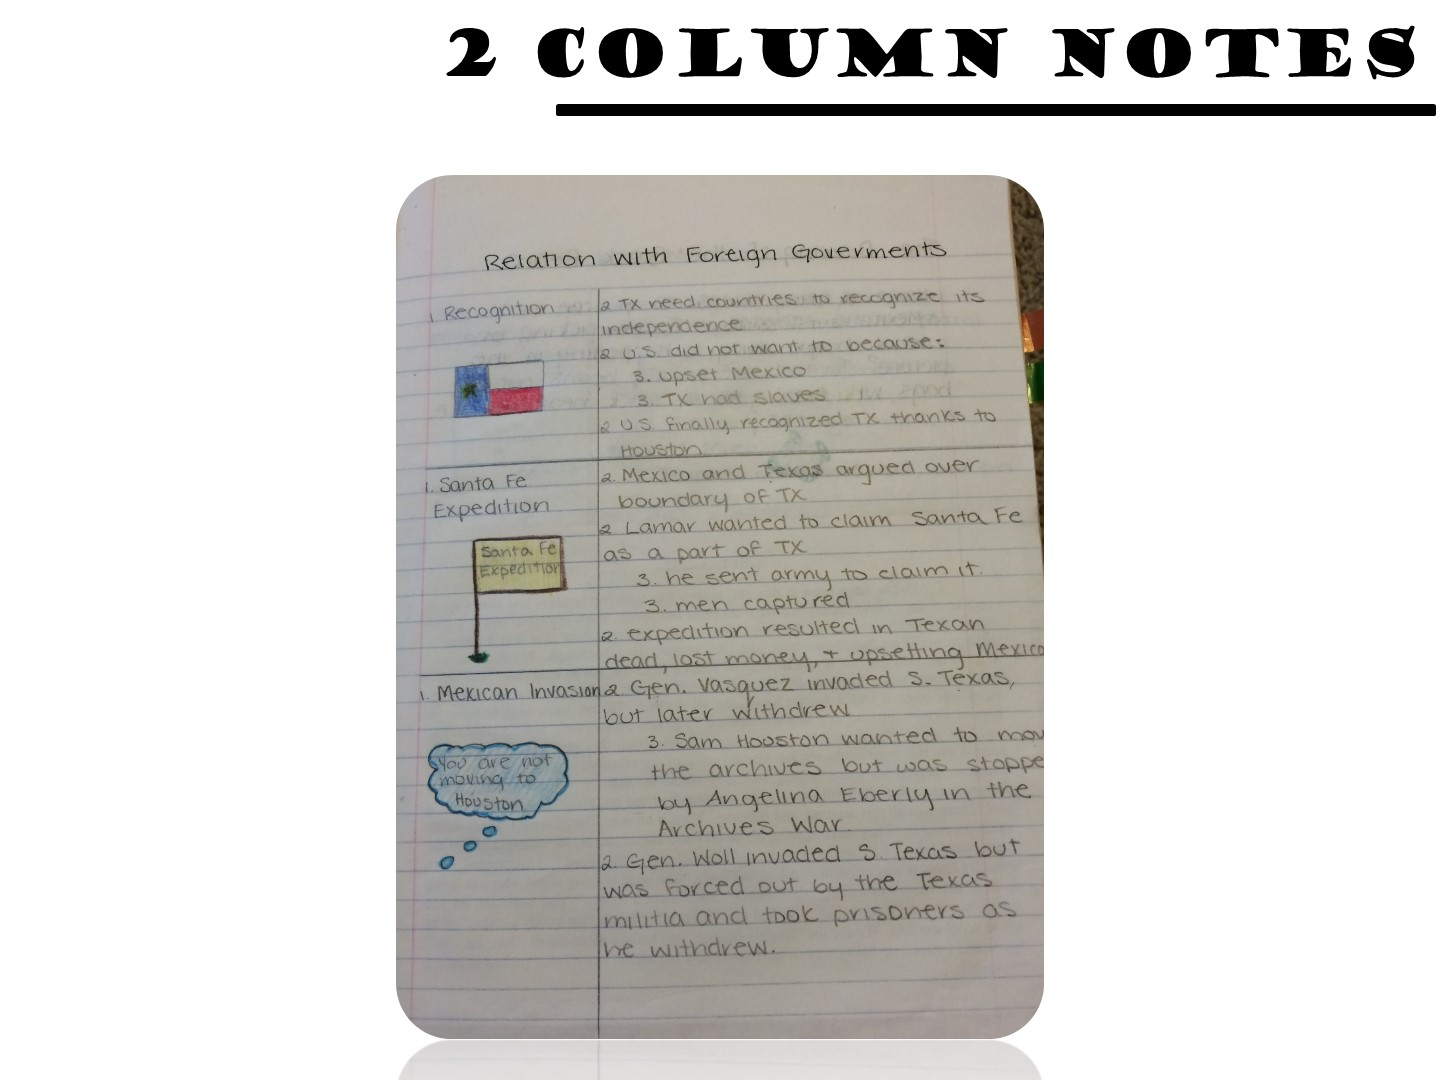 2 COLUMN NOTES
Relation with Foreign Goverments
1. Recognition
2 TX need countries to recognize its
independence
2 U.S. did not want to because:
3. upset Mexico
3. TX had slaves
2 U.S. finally recognized TX thanks to
Houston
1. Santa Fe
Expedition
Santa Fe
Expedition
2. Mexico and Texas argued over
boundary of TX
2 Lamar wanted to claim Santa Fe
as a part of TX
3. he sent army to claim it.
3. men captured
2 expedition resulted in Texan
dead, lost money, + upsetting Mexico
1. Mexican Invasion
You are not
moving to
Houston
2 Gen. Vasquez invaded S. Texas,
but later withdrew
3. Sam Houston wanted to mov
the archives but was stoppe
by Angelina Eberly in the
Archives War.
2. Gen. Woll invaded S. Texas but
was forced out by the Texas
militia and took prisoners as
he withdrew.